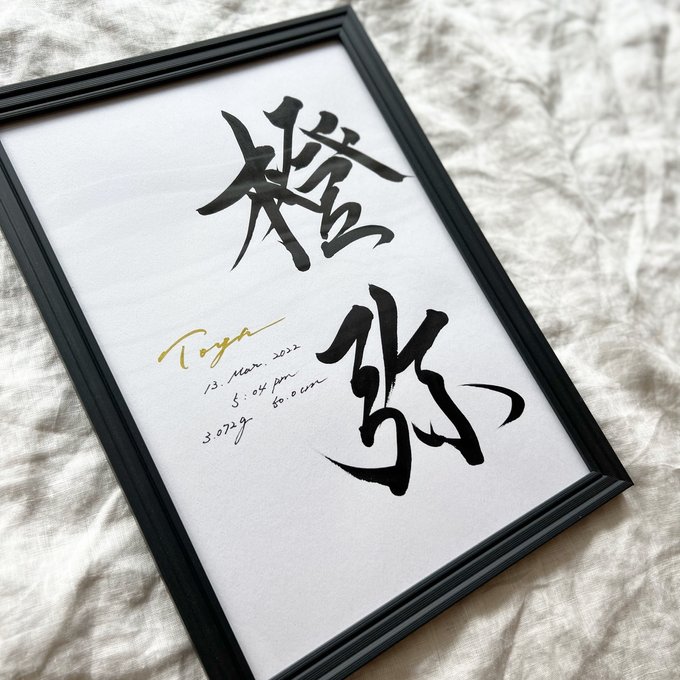 橙弥
Toya
13. Mar. 2022
5:04 pm
3.072g 50.0cm